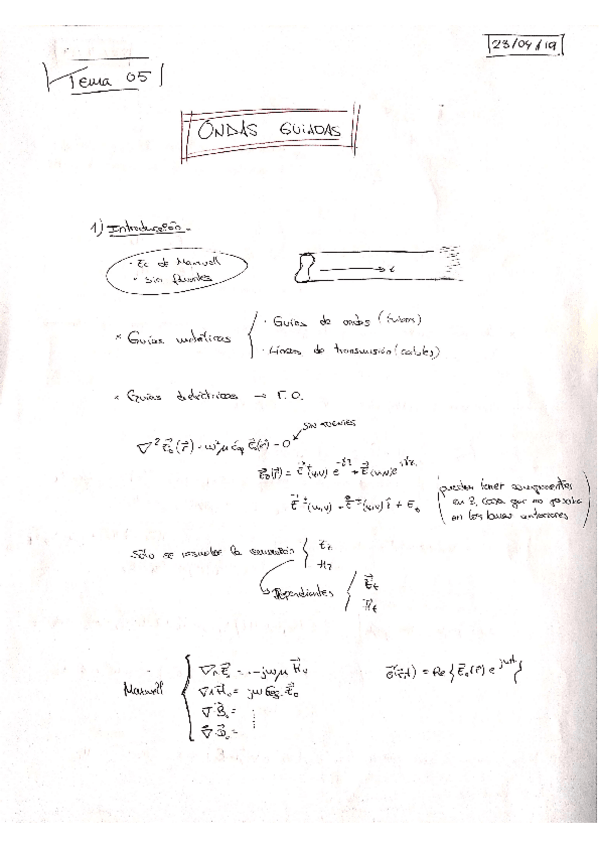 23/04/19
Tema 05
ONDAS GUIADAS
1) Introducción.-
· Ec de Maxwell
· Sin fuentes
z
* Guías metálicas { · Guías de ondas (tubos)
· Líneas de transmisión (cables)
* Guías dieléctricas → F.O.
SIN FUENTES
∇² E₀(r) - ω²μ ε_eq E₀(r) = 0
E₀(r) = E⁺(u,v) e^{-γz} + E⁻(u,v) e^{γz}
(pueden tener componentes
en z, cosa que no pasaba
en los temas anteriores)
Sólo se resuelve la ecuación { E_z
H_z
Dependientes { E_t
H_t
Maxwell { ∇∧E₀ = -jωμ H₀
e(r,t) = Re { E₀(r) e^{jωt} }
∇∧H₀ = jω ε_eq E₀
∇·B₀ =
∇·D₀ =